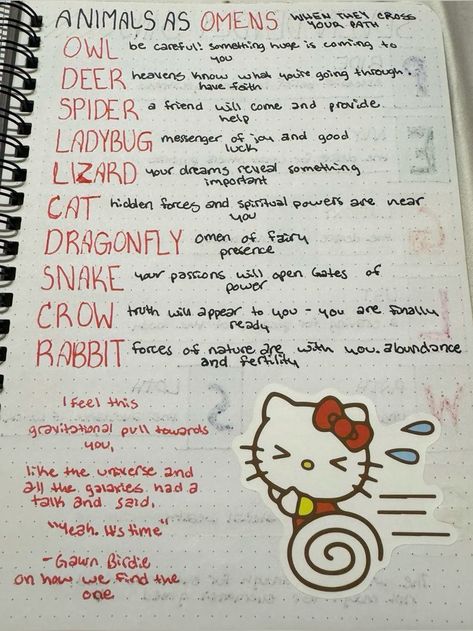 ANIMALS AS OMENS WHEN THEY CROSS
YOUR PATH
OWL be careful! something huge is coming to
you
DEER heavens know what you're going through.
have faith
SPIDER a friend will come and provide
help
LADYBUG messenger of joy and good
luck
LIZARD your dreams reveal something
important
CAT hidden forces and spiritual powers are near
you
DRAGONFLY omen of fairy
presence
SNAKE your passions will open Gates of
power
CROW truth will appear to you - you are finally
ready
RABBIT forces of nature are with you. abundance
and fertility
I feel this
gravitational pull towards
you,
like the universe and
all the galaxies had a
talk and said,
"Yeah. It's time"
- Gawn Birdie
on how we find the
one